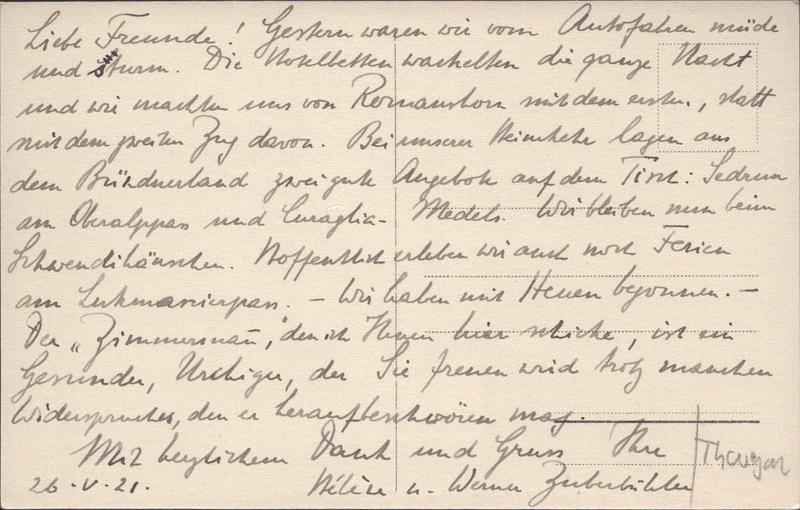 Liebe Freunde! Gestern waren wir vom Autofahren müde
und sturm. Die Hotelbetten wackelten die ganze Nacht
und wir machten uns von Romanshorn mit dem ersten, statt
mit dem zweiten Zug davon. Bei unserer Heimkehr lagen aus
dem Bündnerland zwei gute Angebote auf dem Tisch: Sedrun
am Oberalppass und Curaglia-Medels. Wir bleiben nun beim
Schwendihäuschen. Hoffentlich erleben wir auch noch Ferien
am Lukmanierpass. – Wir haben mit Heuen begonnen. –
Der „Zimmermann", den ich Ihnen hier schicke, ist ein
Gesunder, Urchiger, der Sie freuen wird trotz manchen
Widerspruches, den er heraufbeschwören mag.
Mit herzlichem Dank und Gruss Ihre
26.V.21. Hélène u. Werner Zuberbühler
Thurgau